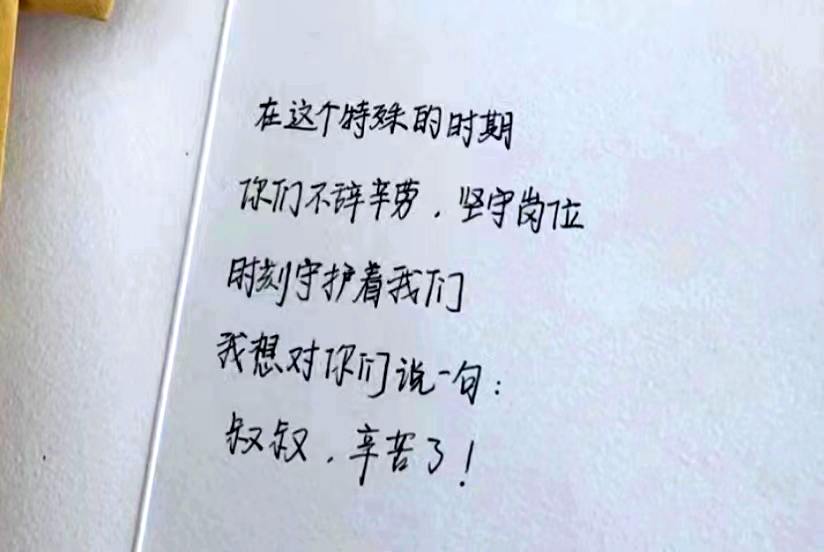 在这个特殊的时期
你们不辞辛劳，坚守岗位
时刻守护着我们
我想对你们说一句：
叔叔，辛苦了！